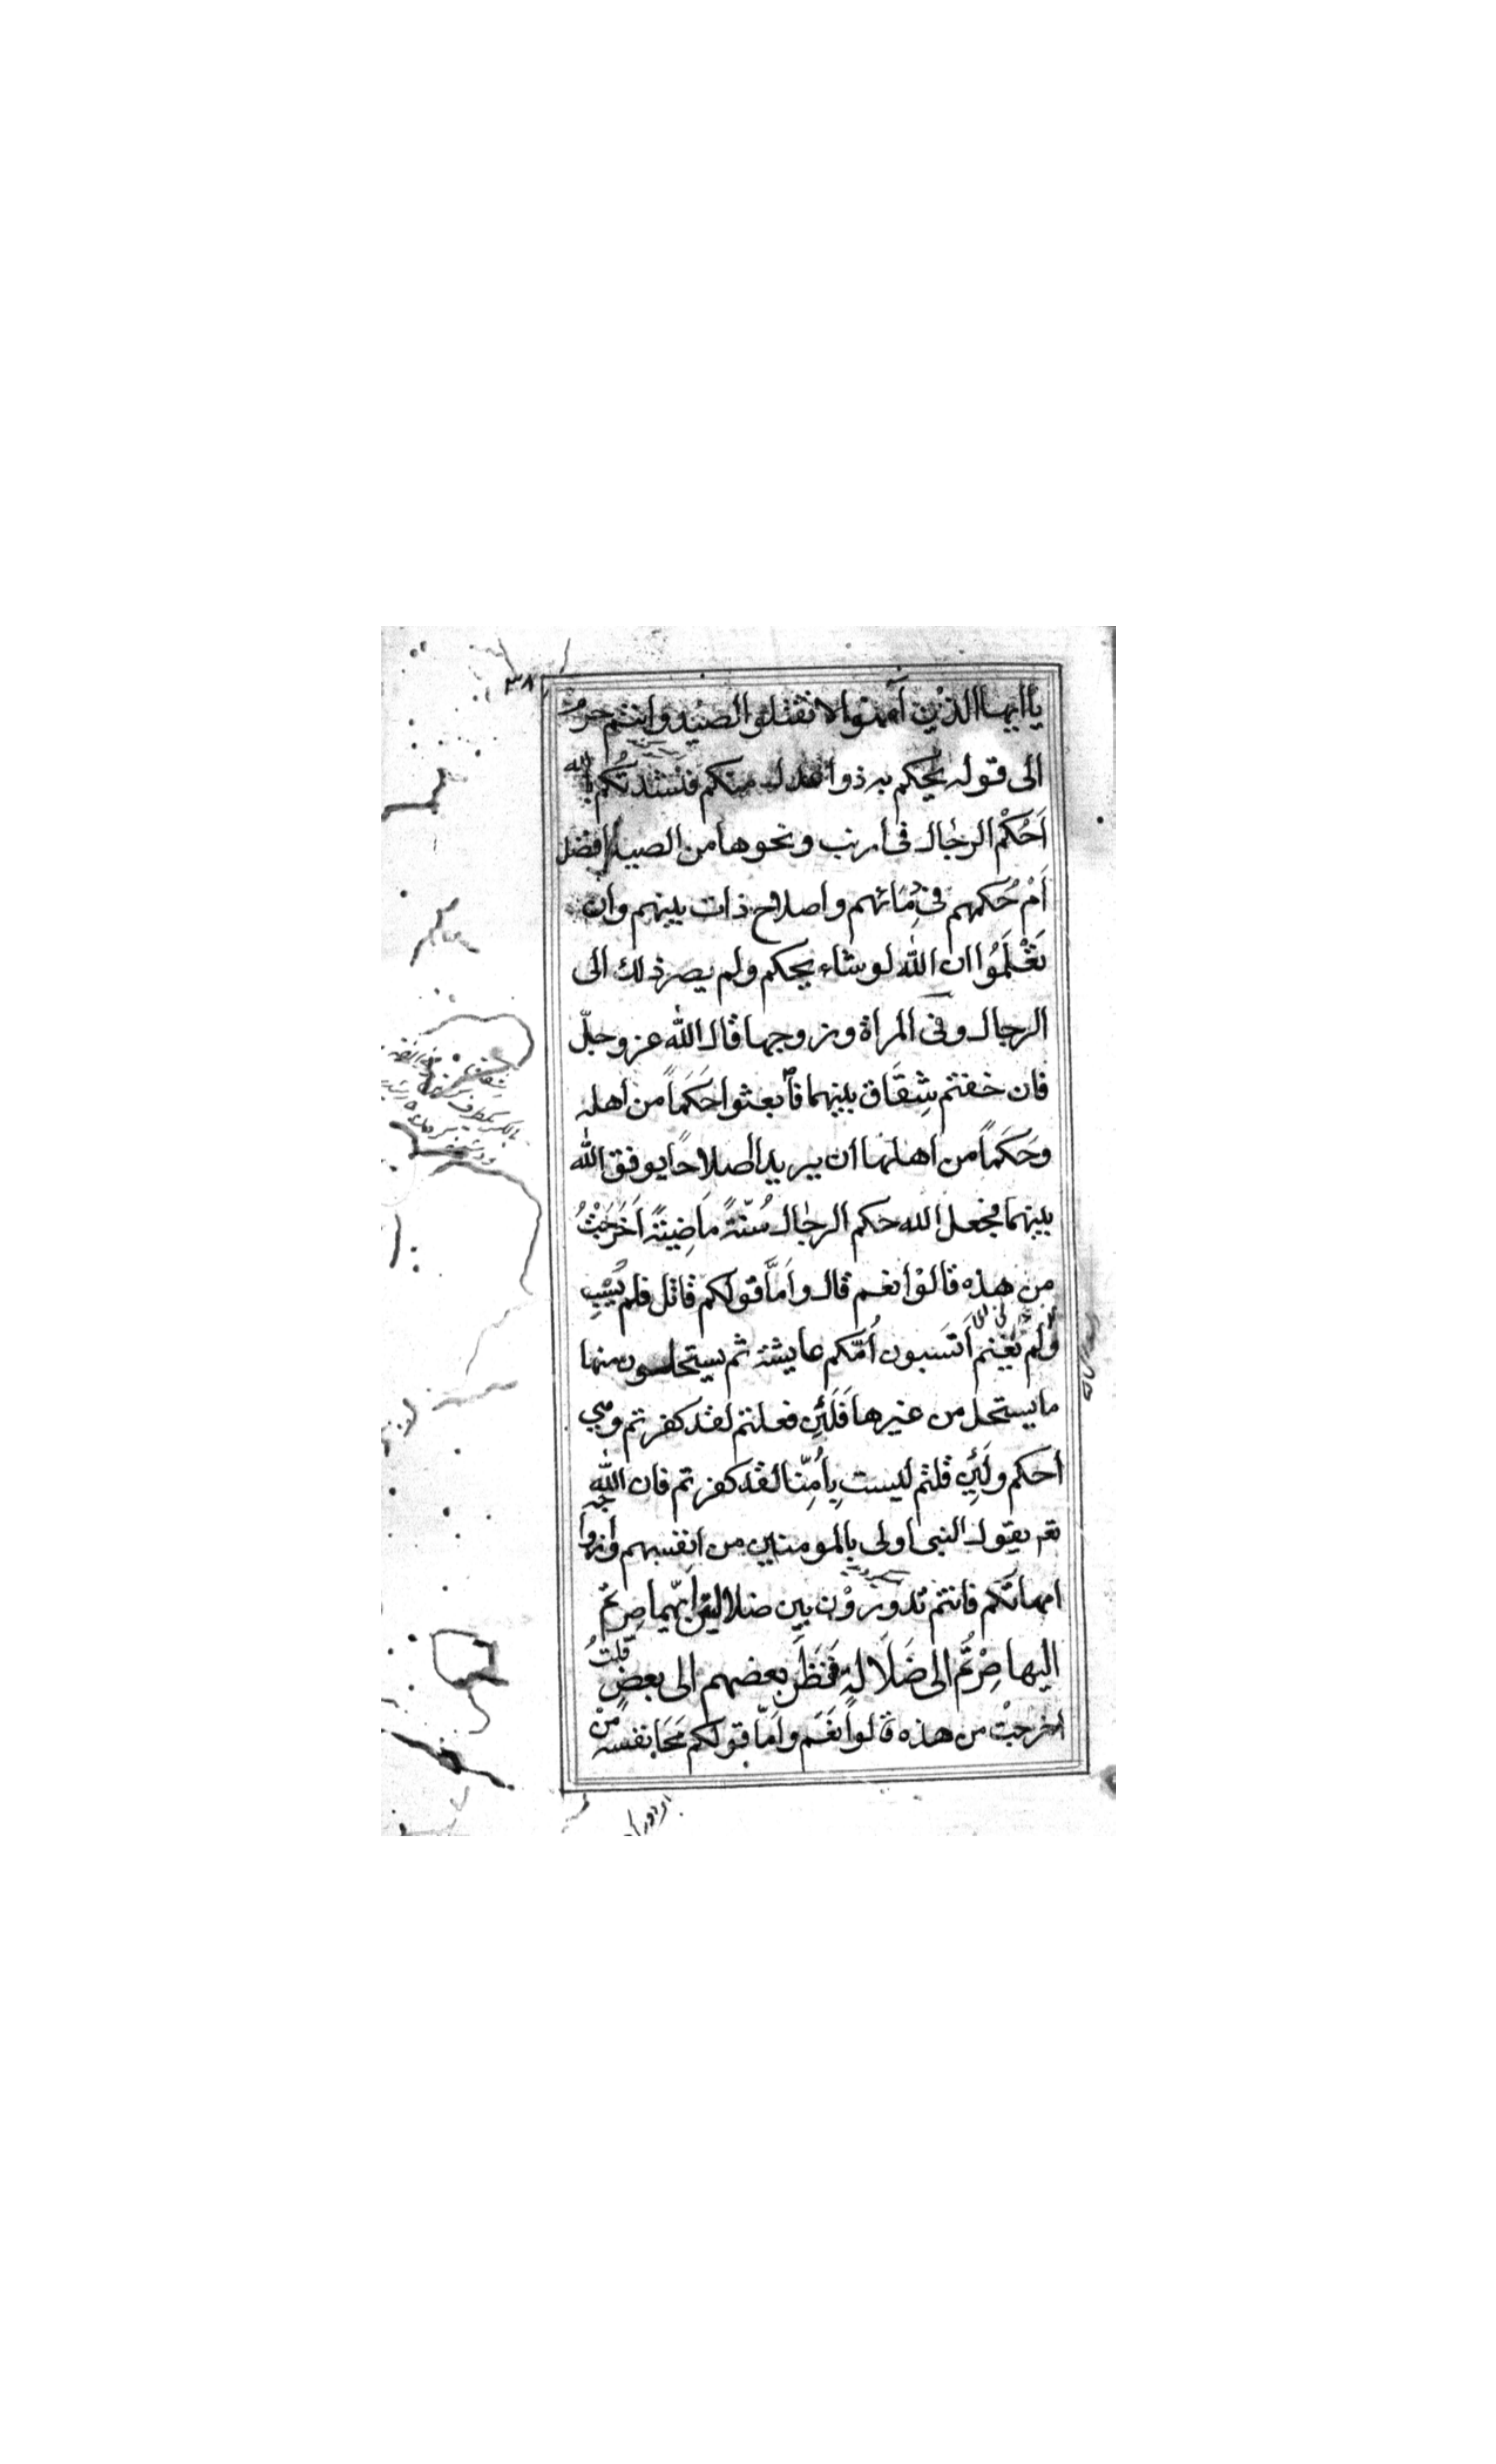 ٣٨
يا ايها الذين آمنوا لا تقتلوا الصيد وانتم حرم
الى قوله يحكم به ذوا عدل منكم فنشدتكم بالله
اَحُكْم الرجال فى ارنب ونحوها من الصيد افضل
اَمْ حُكمهم فى دِمَائهم واصلاح ذات بينهم وان
تَعْلَمُوا ان الله لو شاء يحكم ولم يصر ذلك الى
الرجال وفى المراة وزوجها قال الله عز وجلّ
فان خفتم شِقَاق بينهما فابعثوا حَكَماً من اهله
وحَكَماً من اهلها ان يريدا اصلاحًا يوفق الله
بينهما فجعل الله حكم الرجال سُنّةً ماضِيَةً اَخَرَجْتُ
من هذه قالوْا نعم قال واَمَّا قولكم قاتل فلم يَسْبِ
ولم يَغْنم اَتَسبون اُمّكم عايشة ثم يستحلون منها
ما يستحل من غيرها فَلَئِن فعلتم لقد كفرتم وهى
امكم ولَئِن قلتم ليست بِاُمِّنا لقد كفرتم فان الله
تع يقول النبى اولى بالمومنين من انفسهم وازواجه
امهاتكم فانتم تدورُوْن بين ضلالتين ايّهما صِرتم
اليها صِرْتُم الى ضَلَالةٍ فَنَظَر بعضهم الى بعضٍ قلتُ
اخرجْت من هذه قالوا نَعَم واَمّا قولكم مَحَا نفسه مِنْ